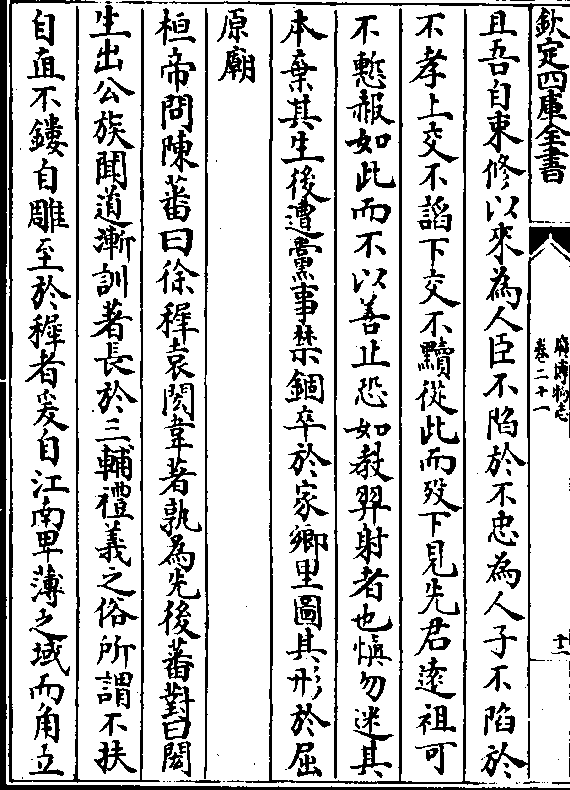 欽定四庫全書
廣博物志
卷二十一
十二
且吾自束修以來為人臣不陷於不忠為人子不陷於
不孝上交不謟下交不黷從此而殁下見先君逺祖可
不慙赧如此而不以善止恐如教羿射者也慎勿迷其
本棄其生後遭黨事禁錮卒於家鄉里圖其形於屈
原廟
桓帝問陳蕃曰徐稺袁閎韋著孰為先後蕃對曰閎
生出公族聞道漸訓著長於三輔禮義之俗所謂不扶
自直不鏤自雕至於稺者爰自江南卑薄之域而角立